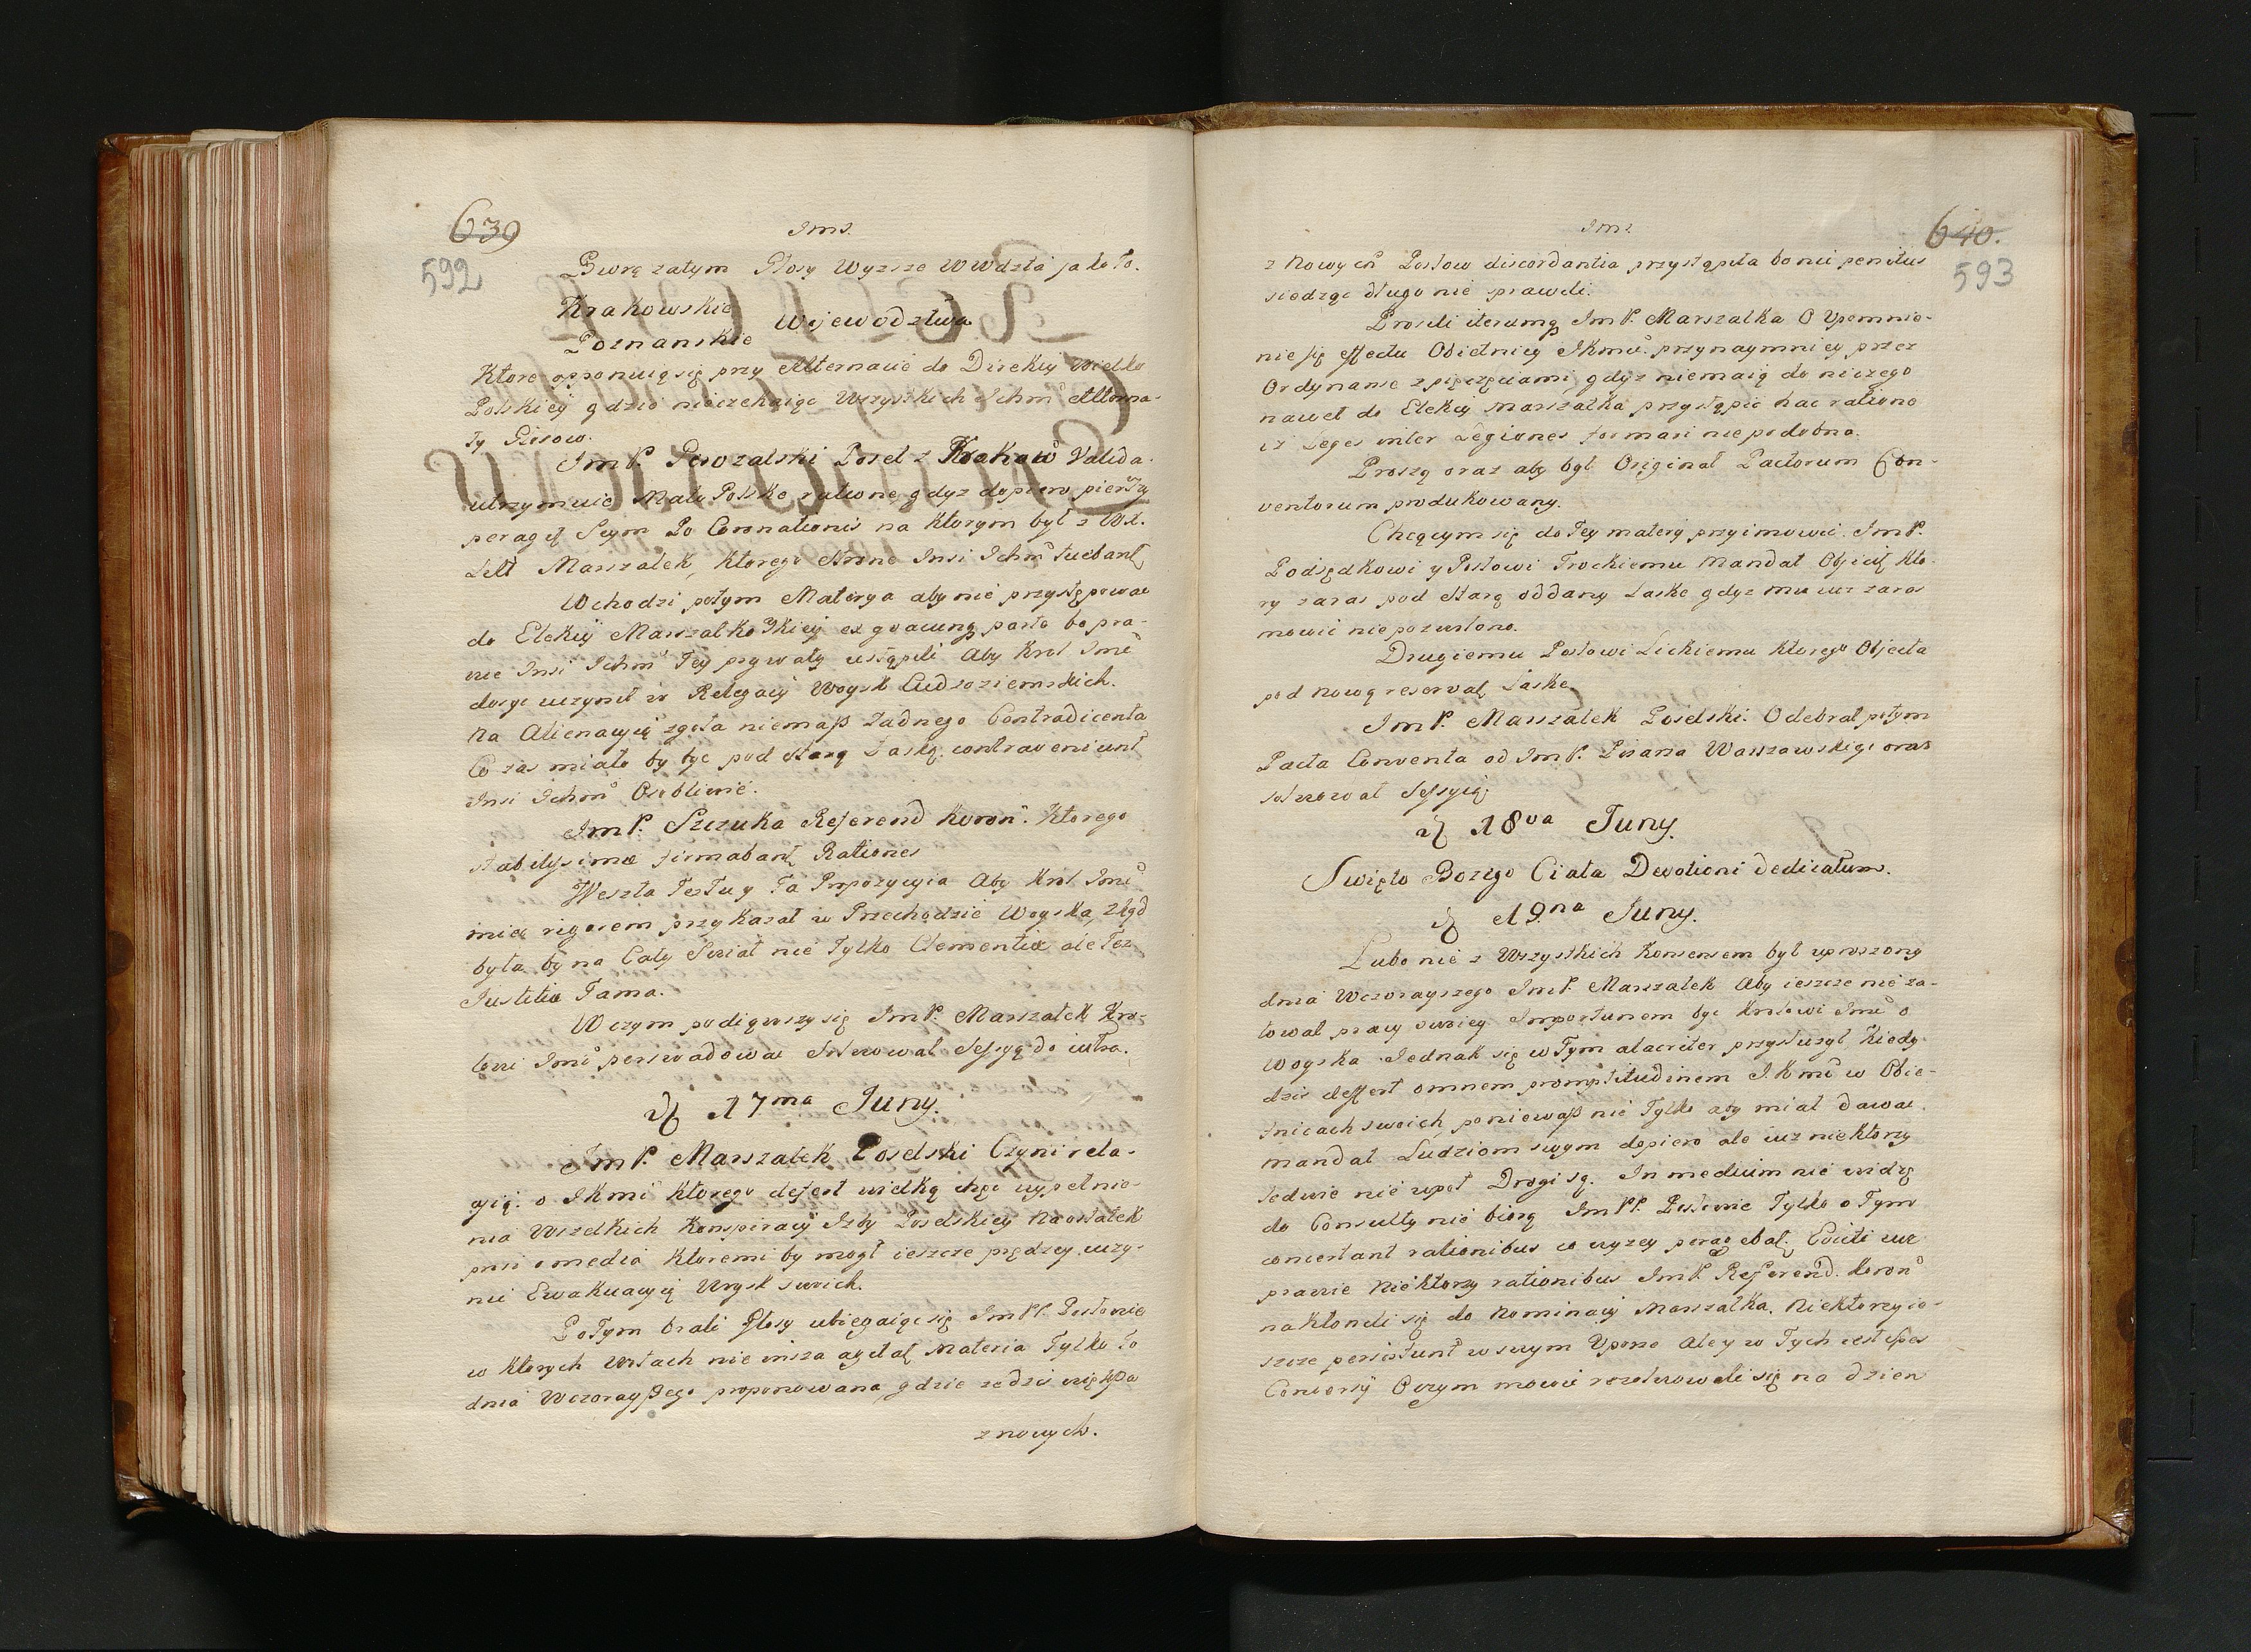 639
592
Jms.
Biorą zatym Głosy Wyższe Wwdztá jako to.
Krakowskie
Wojewodztwa
Poznanskie
Ktore opponuią się przy Alternacie do Direkcij Wielko
Polskiey gdzie nieczekaiąc Wszystkich Ichm Alterna-
ty Głosow.
Im P. Poseł z Krakow Valida
utrzymuie Mało Polskę ratione gdyz dopiero pierszy
peragit Seym Po Coronationis na Ktorym był z WX.
Litt Marszałek, Ktorego Strone Insi Ichm tuebant
Wchodzi potym Materya aby nie przystępować
do Elekcij Marszałkoskiey ex quacunq parte bo pra-
wie Insi Ichm Tey prywaty ustąpili Aby Krol Jmć
dosyc uczynił w Relegacij Woysk Cudzoziemskich.
Na Alienacyią zgoła niemasz Zadnego Contradicenta
Co zas miało by byc pod Starą Laską contraveniunt
Insi Ichm Osobliwie.
Im P. Szczuka Referend Koron. Ktorego
stabilissimæ firmabant Rationes
Weszła Tez Tu y Ta Propozycyia Aby Krol Jmć
rigorem przykazał w Przechodzie Woyska, Zkąd
była by na Cały Swiat nie Tylko Clementiæ ale Tez
Iustitiæ Fama.
W czym podiąwszy się Im P. Marszałek Kro-
lowi Jmć perswadować Solwował Sessyą do iutra.
d 17ma Juny.
Im P. Marszałek Poselski Czyni rela-
cyią o JKmć Ktorego defert wielką chęc wypełnie-
nia Wszelkich Konspiracij Izby Poselskiey Naostatek
prosi o media Ktoremi by mogł ieszcze prędzey uczy-
nić Ewakuacyią Woysk swoich.
Potym brali Głosy ubiegaiąc się Im PP. Posłowie
w Ktorych Ustach nie insza agitat Materia Tylko to
dnia Wczorayszego proponowana, gdzie zedzis większa
z nowych.
640.
593
Jms.
z Nowych Posłow discordantia przystąpiła bo nic penitus
siedząc długo nie sprawili.
Prosili iterumq Im P. Marszałka O Upomnie-
nie się effectu Obietnicy JKmći przynaymniey przez
Ordynanse z pięczęciami, gdyz niemaią do niczego
nawet do Elekcij Marszałka przystąpić hac ratione
iż Leges inter Legiones formari niepodobna.
Proszą oraz aby był Originał Pactorum Con-
ventorum produkowany.
Chcącym się do Tey materij przyimowić Im P.
Podsędkowi y Posłowi Trockiemu Mandat Obiicit Kto-
ry zaraz pod Starą oddany Laskę gdyz mu iuz zaraz
mowić nie pozwolono.
Drugiemu Posłowi Lickiemu Ktorego Objecta
pod Nową reservat Laskę
Im P. Marszałek Poselski. Odebrał potym
Pacta Conventa od Im P. Pisarza Warszawskiego oraz
solwował Sessyią
d 18va Juny.
Swięto Bozego Ciała Devotioni dedicatum.
d 19na Juny.
Lubo nie z Wszystkich Konsensem był uproszony
dnia Wczorayszego Im P. Marszałek Aby ieszcze nie za-
łował pracy swoiey Importunem byc Krolowi Jmć o
Woyska Jednak się w Tym alacriter przysłuzył Kiedy
dzis deffert omnem promptitudinem JKmć w Obie-
tnicach swoich poniewasz nie Tylko aby miał dawać
mandat Ludziom swym dopiero ale iuz niektorzy
ledwie nie wpoł Drogi są. In medium nie widzę
do Consulty nie biorą Im PP. Posłowie Tylko o Tym
concertant rationibus co wyzey peragebat. Evicti iuz
prawie Niektorzy rationibus Im P. Referend. Koron
nakłonili się do Nominacij Marszałka. Niektorzy ie-
szcze persistunt w swym Uporze Ale y w Tych iest spes
Conversij O czym mowić rezolwowali się na dzien